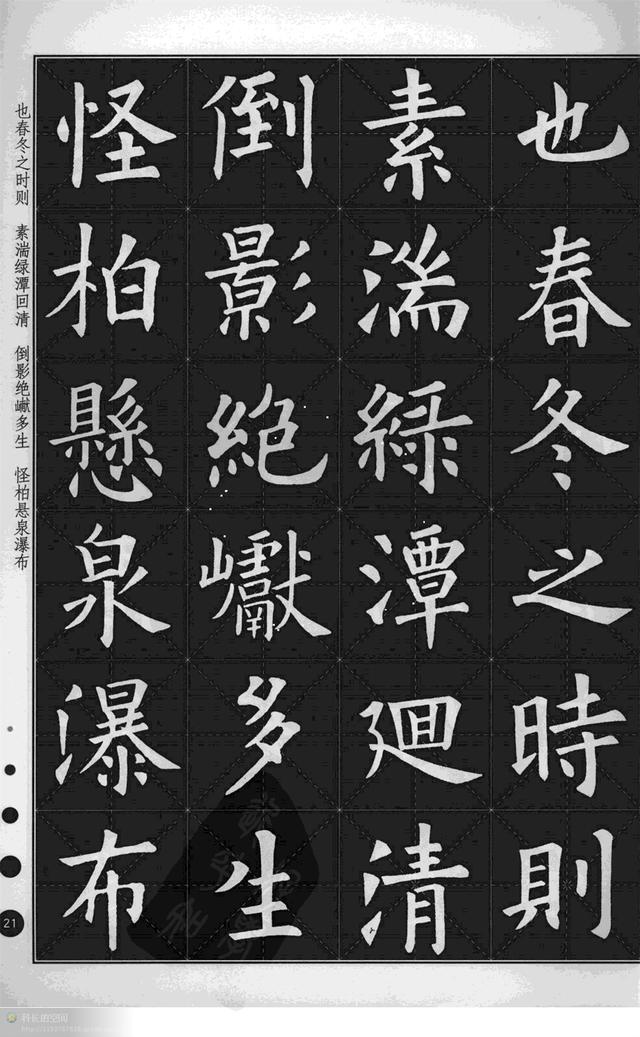 也春冬之時則
素湍綠潭廻清
倒影絕巘多生
怪柏懸泉瀑布
也春冬之时则 素湍绿潭回清 倒影绝巘多生 怪柏悬泉瀑布
21
科长的空间